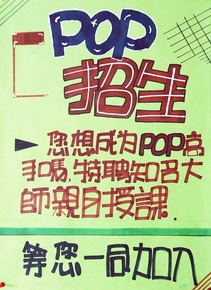 POP
招生
您想成为POP高
手吗.特聘知名大
师亲自授课.
等您一同加入